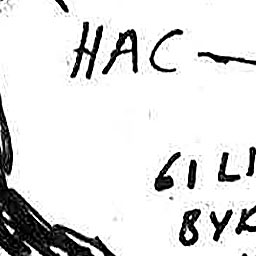 HAC
GILI
BYK